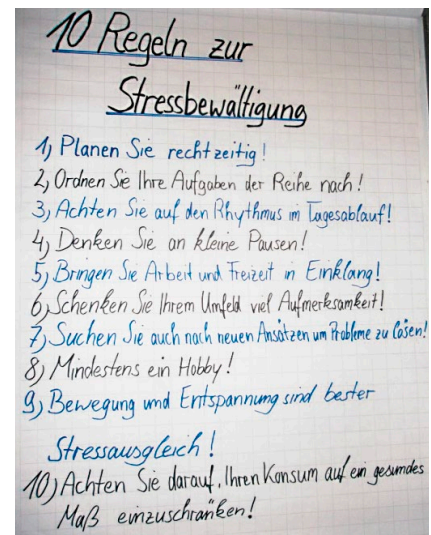 10 Regeln zur
Stressbewältigung
1) Planen Sie rechtzeitig!
2) Ordnen Sie Ihre Aufgaben der Reihe nach!
3) Achten Sie auf den Rhythmus im Tagesablauf!
4) Denken Sie an kleine Pausen!
5) Bringen Sie Arbeit und Freizeit in Einklang!
6) Schenken Sie Ihrem Umfeld viel Aufmerksamkeit!
7) Suchen Sie auch nach neuen Ansätzen um Probleme zu lösen!
8) Mindestens ein Hobby!
9) Bewegung und Entspannung sind bester
Stressausgleich!
10) Achten Sie darauf, Ihren Konsum auf ein gesundes
Maß einzuschränken!